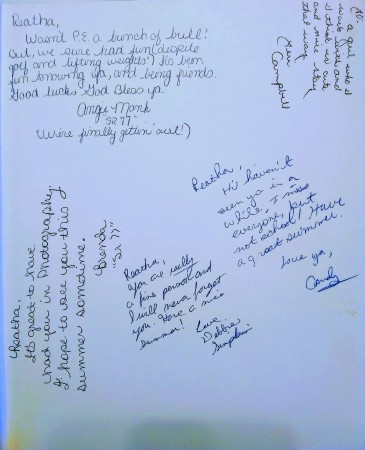 Reatha,
Wasn't P.E a bunch of bull?
But, we sure had fun (despite
golf and lifting weights) It's been
fun knowing ya, and being friends.
Good luck & God Bless ya
Angie Monk
"SR 77"
(We're finally gettin' out!)
To:
a girl who I
and
I think is cute
and sure stay
that way.
Campbell
Reatha,
Hi haven't
seen ya in a
while, I miss
everyone, but
not school! Have
a great summer.
Love ya,
Candy
Reatha,
You are really
a fine person and
I will never forget
you. Have a nice
summer!
Love,
Debbie
Simpkins
Reatha,
It's great to have
had you in Photography.
I hope to see you this
summer sometime.
Brenda
"Sr 77"